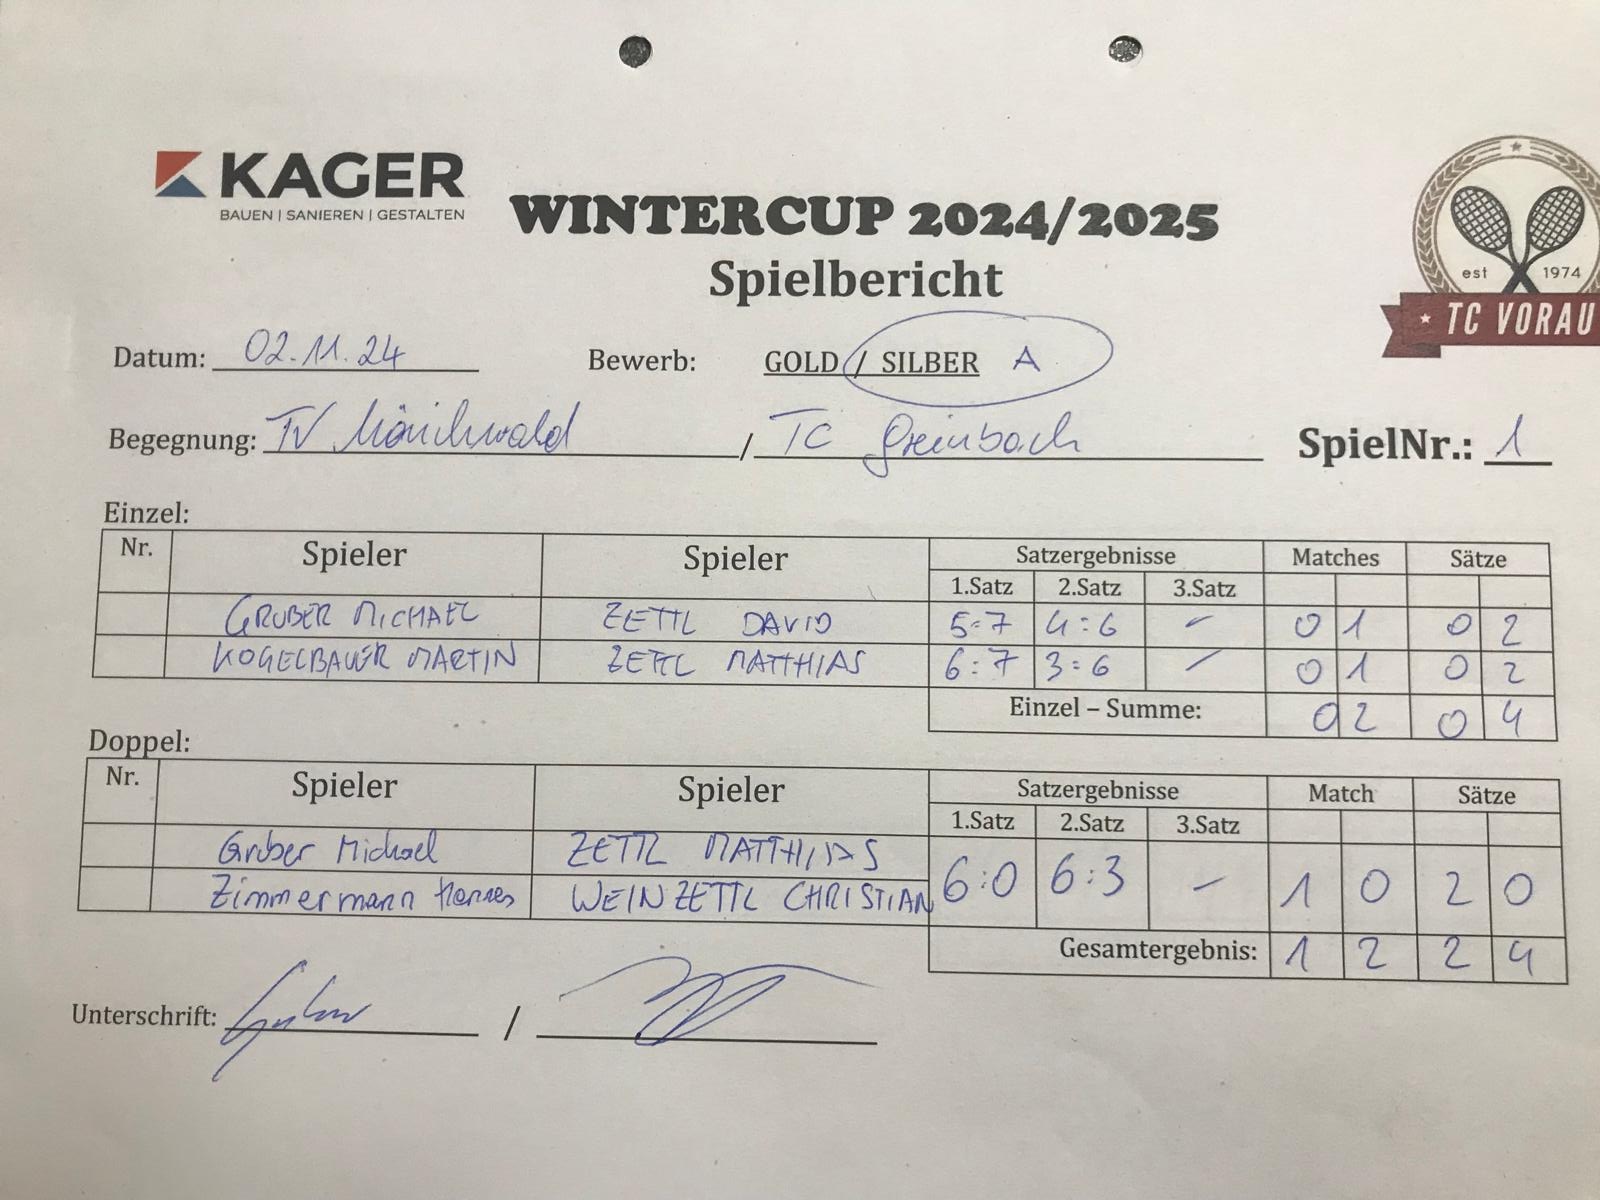 KAGER
BAUEN | SANIEREN | GESTALTEN
WINTERCUP 2024/2025
Spielbericht
est 1974
TC VORAU
Datum: 02.11.24 Bewerb: GOLD / SILBER A
Begegnung: TV Mönichwald / TC Greinbach SpielNr.: 1
Einzel:
Nr. Spieler Spieler Satzergebnisse Matches Sätze
1.Satz 2.Satz 3.Satz
GRUBER MICHAEL ZETTL DAVID 5:7 4:6 - 0 1 0 2
KOGELBAUER MARTIN ZETTL MATTHIAS 6:7 3:6 - 0 1 0 2
Einzel – Summe: 0 2 0 4
Doppel:
Nr. Spieler Spieler Satzergebnisse Match Sätze
1.Satz 2.Satz 3.Satz
Gruber Michael ZETTL MATTHIAS 6:0 6:3 - 1 0 2 0
Zimmermann Hannes WEINZETTL CHRISTIAN
Gesamtergebnis: 1 2 2 4
Unterschrift: /